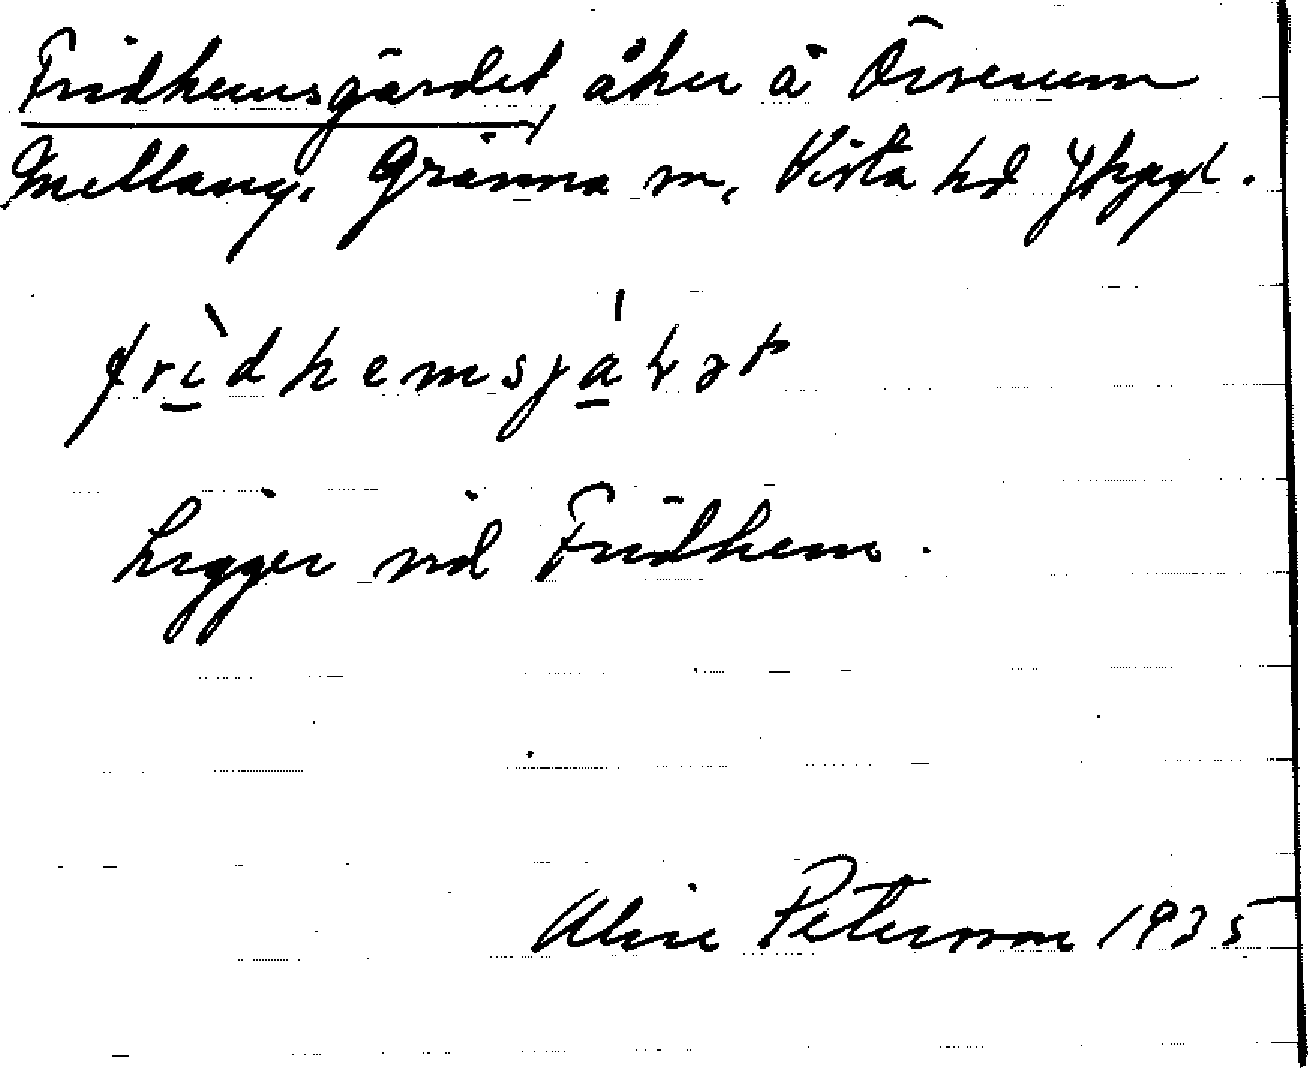 Fridhemsgärdet, åker å Örserum
Mellang. Gränna sn, Vista hd Jkpgl.
Ligger vid Fridhem.
Alice Petersson 1935